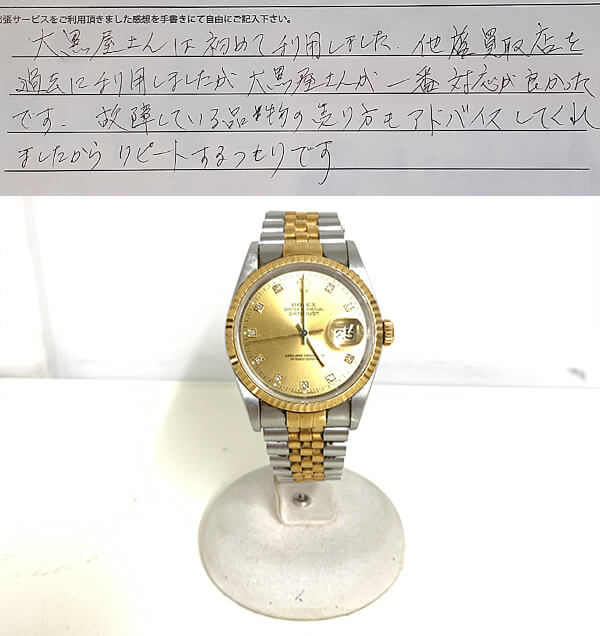 張サービスをご利用頂きました感想を手書きにて自由にご記入下さい。
大黒屋さんは初めて利用しました。他店買取店を
過去に利用しましたが大黒屋さんが一番対応が良かった
です。故障している品物の売り方もアドバイスしてくれ
ましたからリピートするつもりです
ROLEX
OYSTER PERPETUAL
DATEJUST